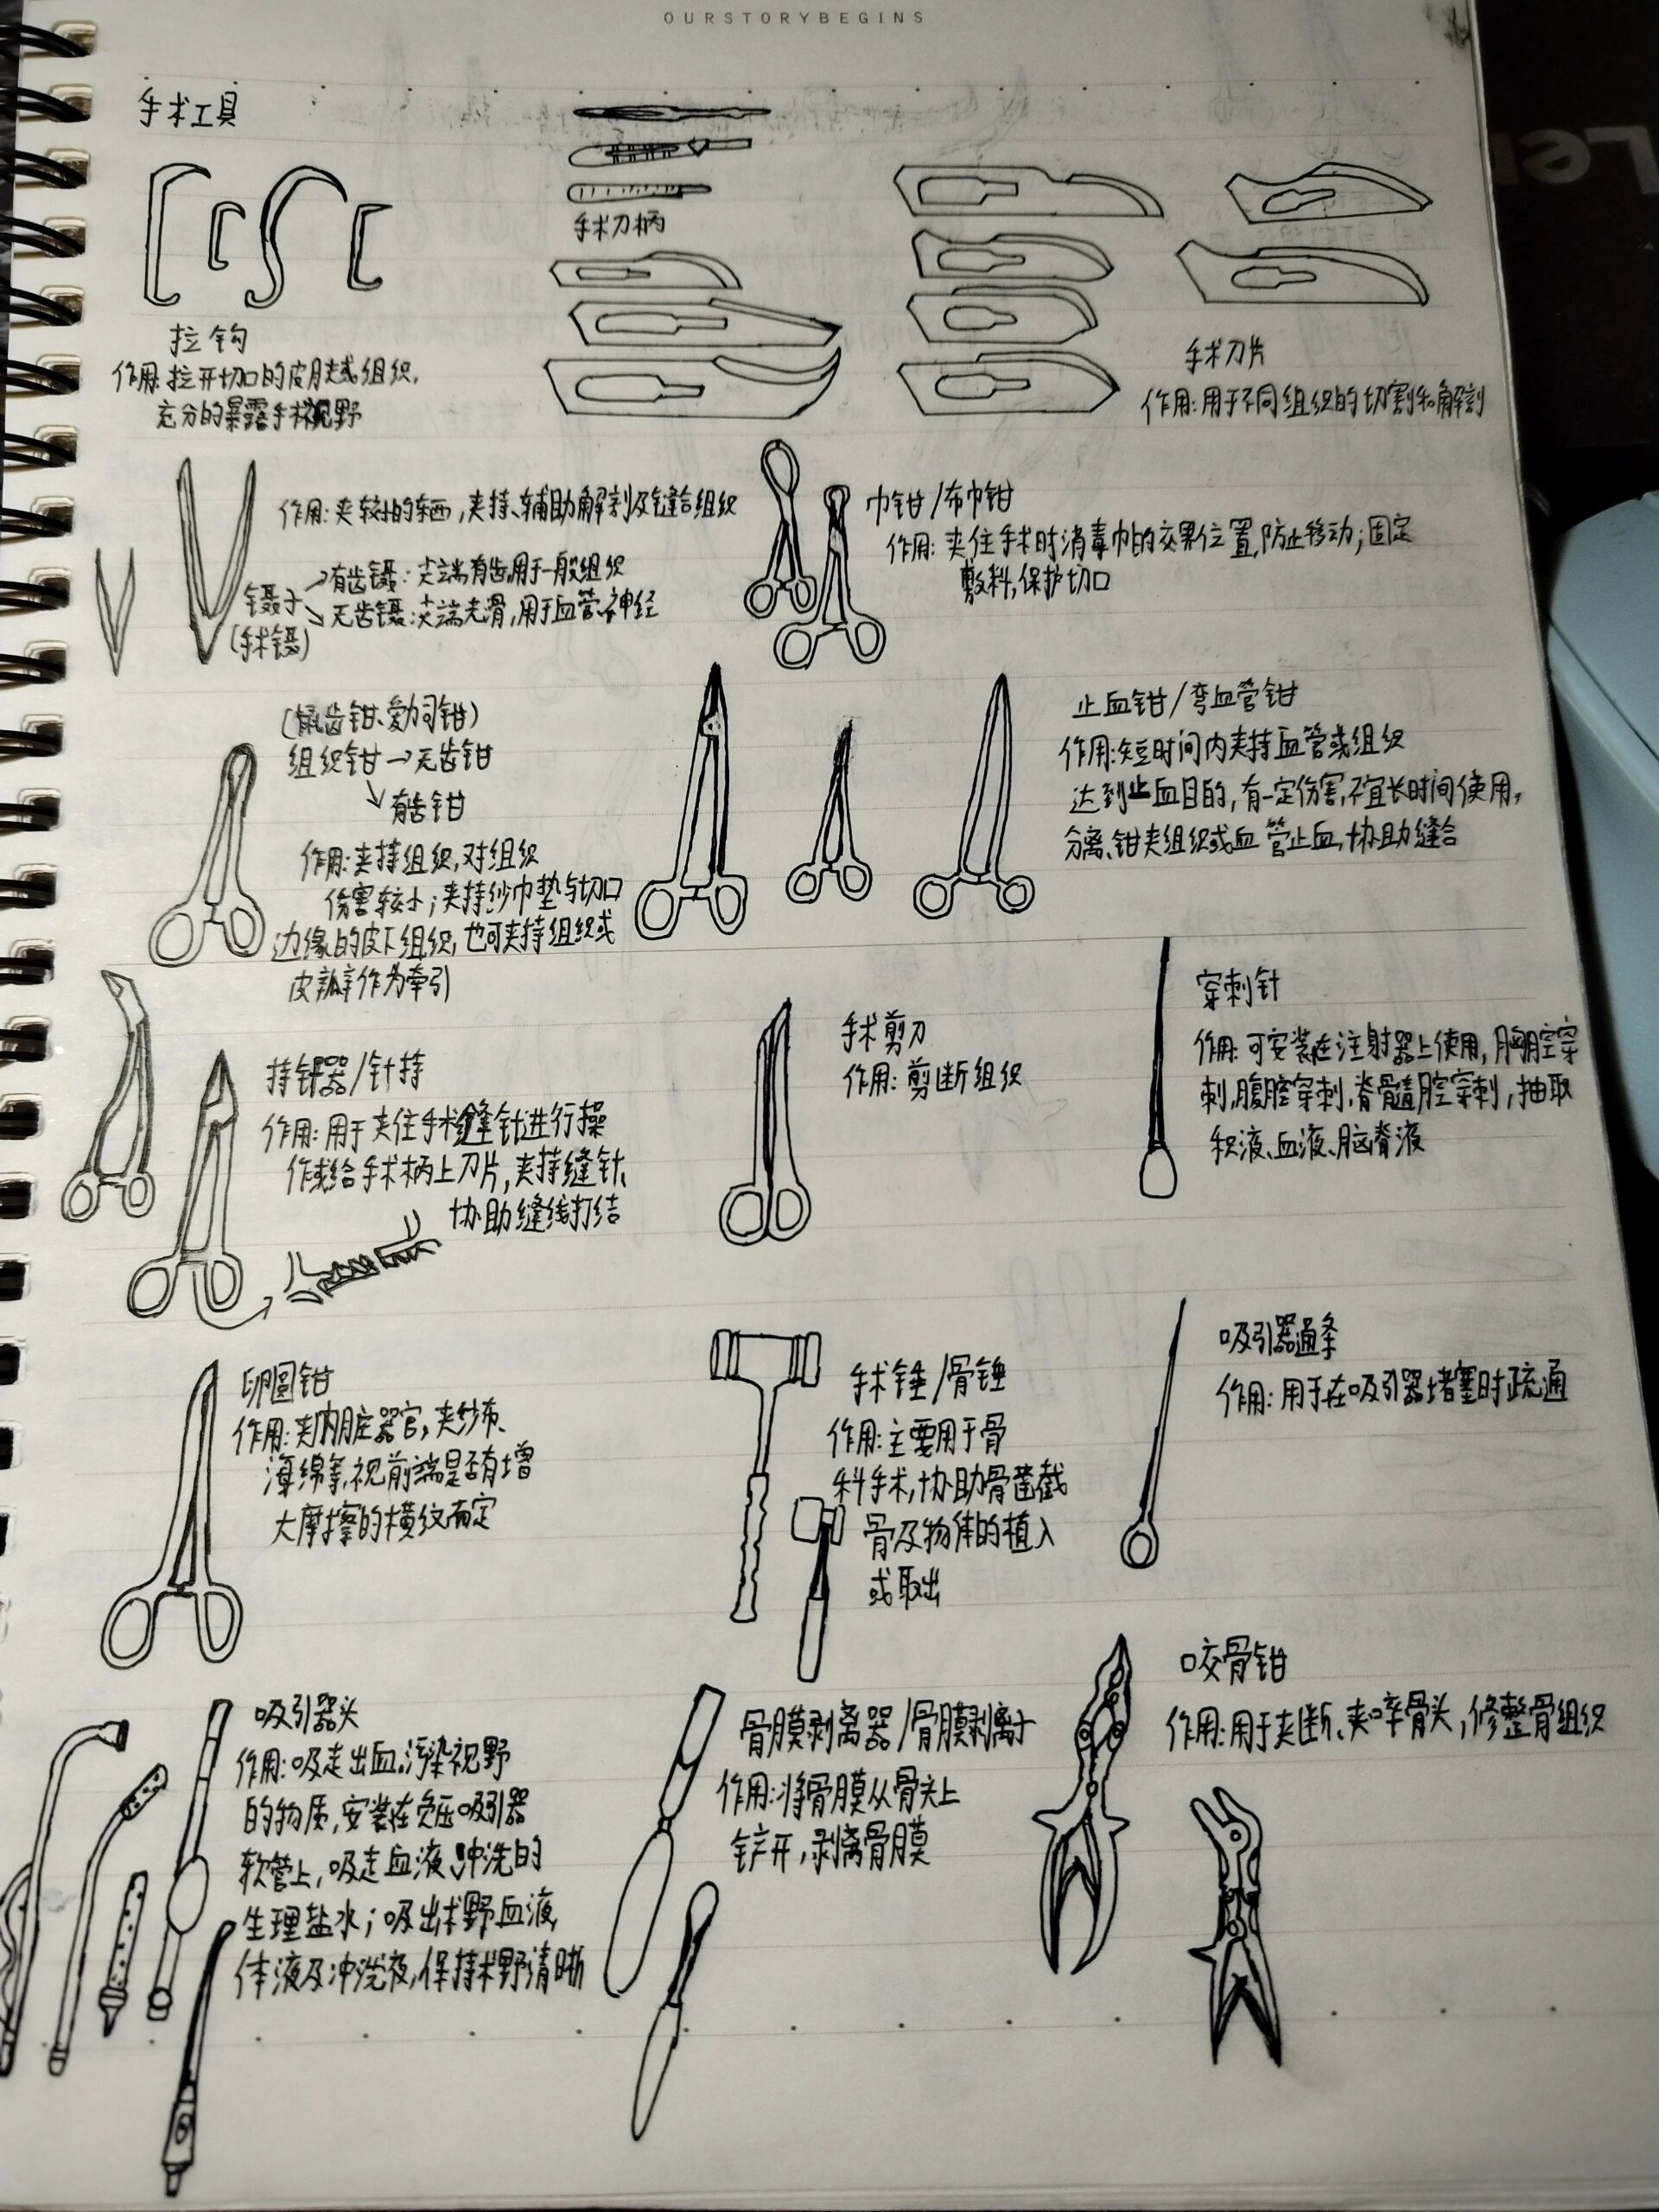 OURSTORYBEGINS
手术工具
手术刀柄
拉钩
作用:拉开切口的皮肤或组织,
充分的暴露手术视野
手术刀片
作用:用于不同组织的切割和解剖
作用:夹较小的东西,夹持、辅助解剖及缝合组织
镊子→有齿镊:尖端有齿,用于一般组织
↘无齿镊:尖端光滑,用于血管、神经
(手术镊)
巾钳/布巾钳
作用:夹住手术时消毒巾的交界位置,防止移动;固定
敷料,保护切口
(鼠齿钳、爱力司钳)
组织钳→无齿钳
↘有齿钳
作用:夹持组织,对组织
伤害较小;夹持纱巾垫与切口
边缘的皮下组织,也可夹持组织或
皮瓣作为牵引
止血钳/弯血管钳
作用:短时间内夹持血管或组织
达到止血目的,有一定伤害,不宜长时间使用,
分离、钳夹组织或血管止血,协助缝合
持针器/针持
作用:用于夹住手术缝针进行操
作或给手术柄上刀片,夹持缝针、
协助缝线打结
手术剪刀
作用:剪断组织
穿刺针
作用:可安装在注射器上使用,胸腔穿
刺,腹腔穿刺,脊髓腔穿刺,抽取
积液、血液、脑脊液
卵圆钳
作用:夹内脏器官,夹纱布、
海绵等,视前端是否有增
大摩擦的横纹而定
手术锤/骨锤
作用:主要用于骨
科手术,协助骨凿截
骨及物体的植入
或取出
吸引器通条
作用:用于在吸引器堵塞时疏通
吸引器头
作用:吸走出血、污染视野
的物质,安装在负压吸引器
软管上,吸走血液、冲洗的
生理盐水;吸出术野血液,
体液及冲洗液,保持术野清晰
骨膜剥离器/骨膜剥离子
作用:将骨膜从骨头上
铲开,剥离骨膜
咬骨钳
作用:用于夹断、夹碎骨头,修整骨组织